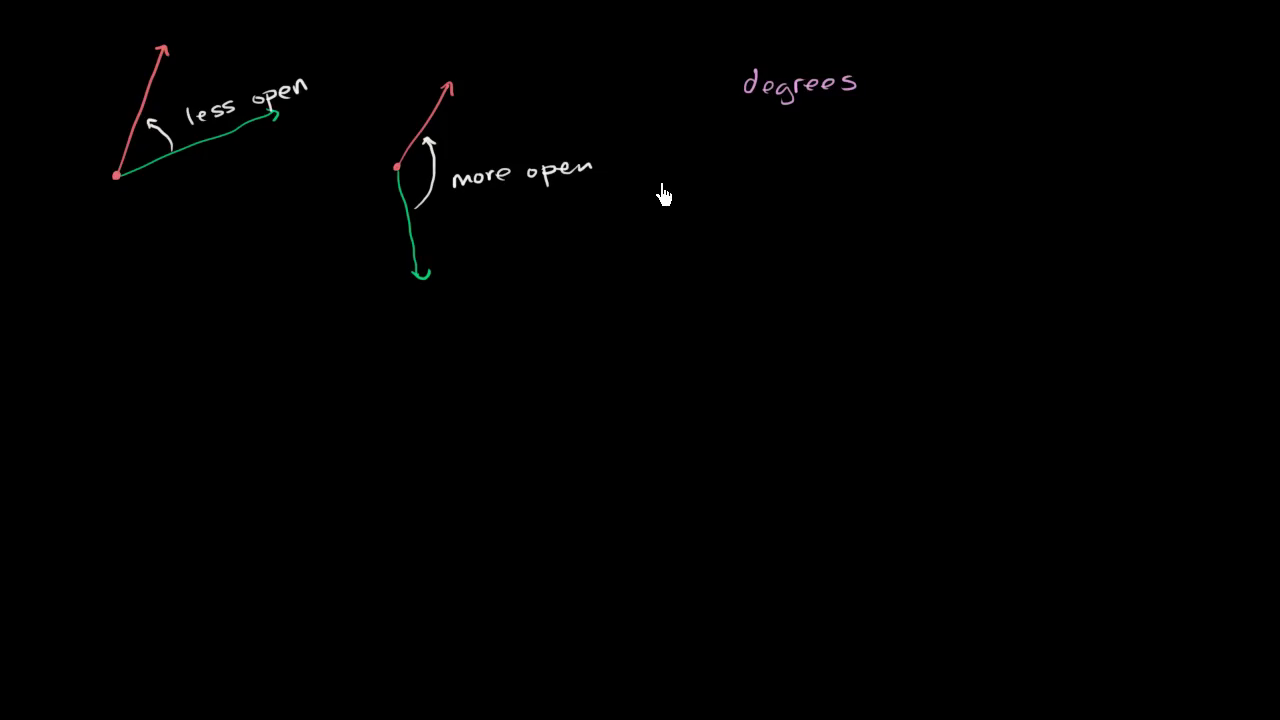 less open
more open
degrees